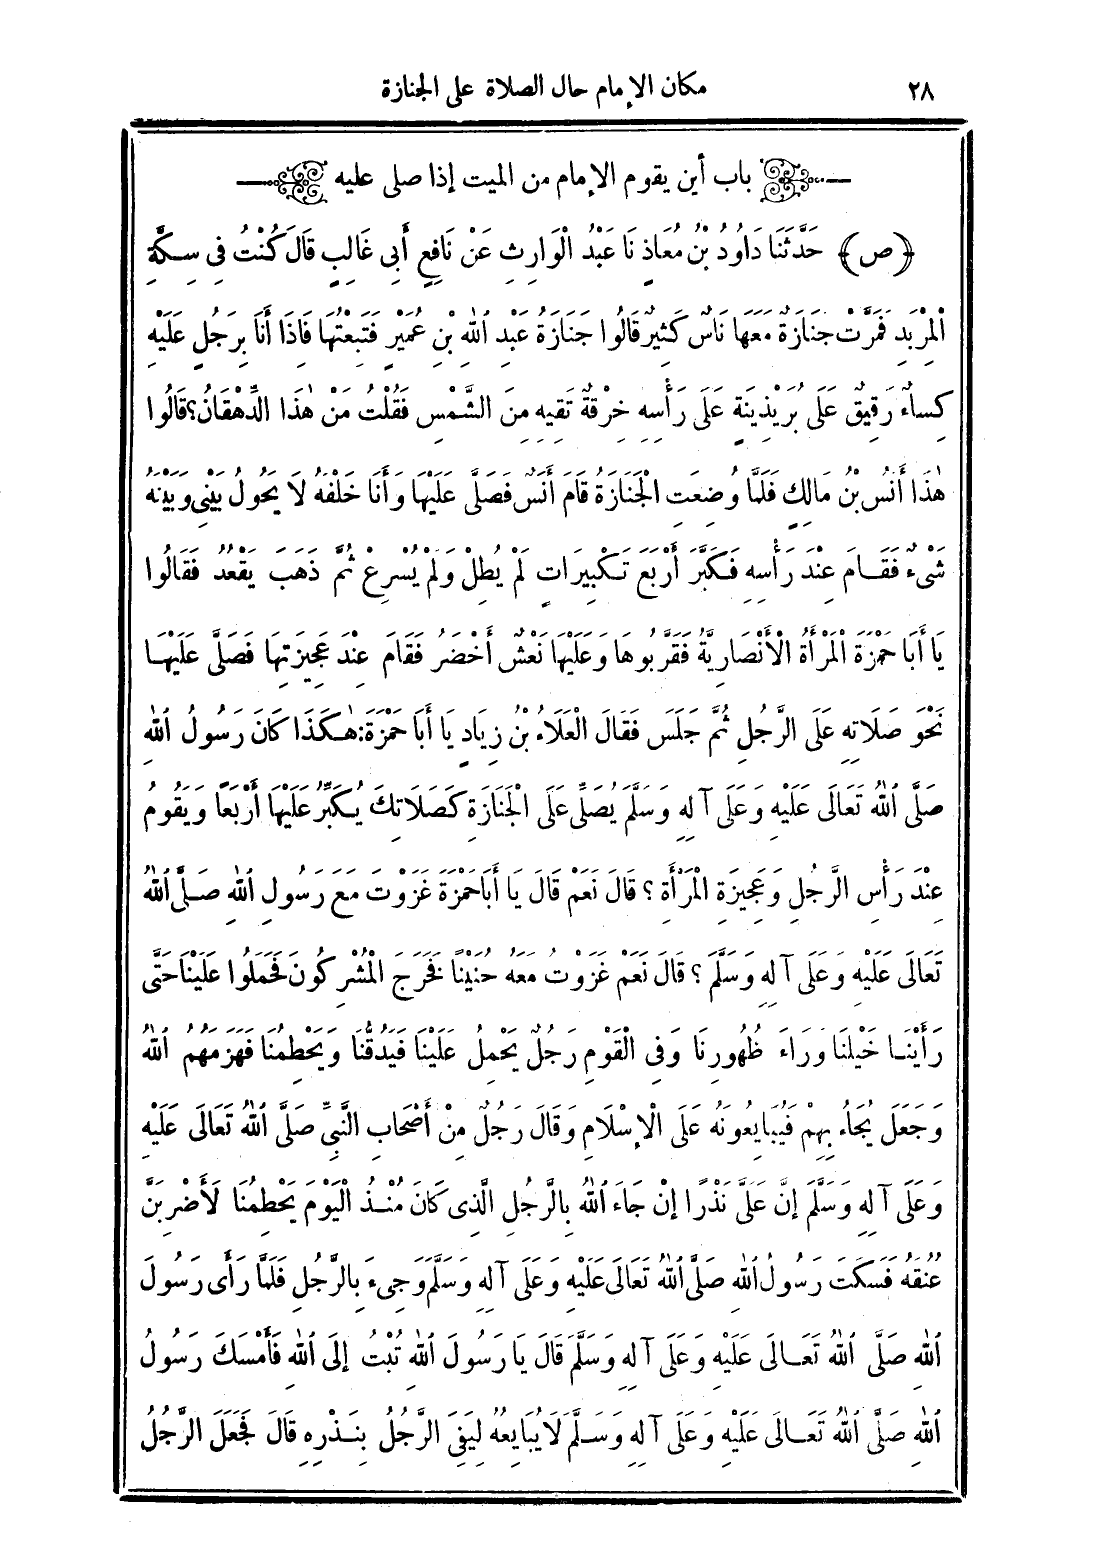 ٢٨ مكان الإمام حال الصلاة على الجنازة
باب أين يقوم الإمام من الميت إذا صلى عليه
﴿ص﴾ حَدَّثَنَا دَاوُدُ بْنُ مُعَاذٍ نَا عَبْدُ الْوَارِثِ عَنْ نَافِعٍ أَبِى غَالِبٍ قَالَ كُنْتُ فِى سِكَّةِ
الْمِرْبَدِ فَمَرَّتْ جَنَازَةٌ مَعَهَا نَاسٌ كَثِيرٌ قَالُوا جَنَازَةُ عَبْدِ اللهِ بْنِ عُمَيْرٍ فَتَبِعْتُهَا فَاذَا أَنَا بِرَجُلٍ عَلَيْهِ
كِسَاءٌ رَقِيقٌ عَلَى بُرَيْذِينَةٍ عَلَى رَأْسِهِ خِرْقَةٌ تَقِيهِ مِنَ الشَّمْسِ فَقُلْتُ مَنْ هٰذَا الدِّهْقَانُ؟ قَالُوا
هٰذَا أَنَسُ بْنُ مَالِكٍ فَلَمَّا وُضِعَتِ الْجَنَازَةُ قَامَ أَنَسٌ فَصَلَّى عَلَيْهَا وَأَنَا خَلْفَهُ لَا يَحُولُ بَيْنِى وَبَيْنَهُ
شَىْءٌ فَقَامَ عِنْدَ رَأْسِهِ فَكَبَّرَ أَرْبَعَ تَكْبِيرَاتٍ لَمْ يُطِلْ وَلَمْ يُسْرِعْ ثُمَّ ذَهَبَ يَقْعُدُ فَقَالُوا
يَا أَبَا حَمْزَةَ الْمَرْأَةُ الْأَنْصَارِيَّةُ فَقَرَّبُوهَا وَعَلَيْهَا نَعْشٌ أَخْضَرُ فَقَامَ عِنْدَ عَجِيزَتِهَا فَصَلَّى عَلَيْهَا
نَحْوَ صَلَاتِهِ عَلَى الرَّجُلِ ثُمَّ جَلَسَ فَقَالَ الْعَلَاءُ بْنُ زِيَادٍ يَا أَبَا حَمْزَةَ: هٰكَذَا كَانَ رَسُولُ اللهِ
صَلَّى اللهُ تَعَالَى عَلَيْهِ وَعَلَى آلِهِ وَسَلَّمَ يُصَلِّى عَلَى الْجَنَازَةِ كَصَلَاتِكَ يُكَبِّرُ عَلَيْهَا أَرْبَعًا وَيَقُومُ
عِنْدَ رَأْسِ الرَّجُلِ وَعَجِيزَةِ الْمَرْأَةِ ؟ قَالَ نَعَمْ قَالَ يَا أَبَا حَمْزَةَ غَزَوْتَ مَعَ رَسُولِ اللهِ صَلَّى اللهُ
تَعَالَى عَلَيْهِ وَعَلَى آلِهِ وَسَلَّمَ ؟ قَالَ نَعَمْ غَزَوْتُ مَعَهُ حُنَيْنًا فَخَرَجَ الْمُشْرِكُونَ فَحَمَلُوا عَلَيْنَا حَتَّى
رَأَيْنَا خَيْلَنَا وَرَاءَ ظُهُورِنَا وَفِى الْقَوْمِ رَجُلٌ يَحْمِلُ عَلَيْنَا فَيَدُقُّنَا وَيَحْطِمُنَا فَهَزَمَهُمُ اللهُ
وَجَعَلَ يُجَاءُ بِهِمْ فَيُبَايِعُونَهُ عَلَى الْإِسْلَامِ وَقَالَ رَجُلٌ مِنْ أَصْحَابِ النَّبِىِّ صَلَّى اللهُ تَعَالَى عَلَيْهِ
وَعَلَى آلِهِ وَسَلَّمَ إِنَّ عَلَىَّ نَذْرًا إِنْ جَاءَ اللهُ بِالرَّجُلِ الَّذِى كَانَ مُنْذُ الْيَوْمَ يَحْطِمُنَا لَأَضْرِبَنَّ
عُنُقَهُ فَسَكَتَ رَسُولُ اللهِ صَلَّى اللهُ تَعَالَى عَلَيْهِ وَعَلَى آلِهِ وَسَلَّمَ وَجِىءَ بِالرَّجُلِ فَلَمَّا رَأَى رَسُولَ
اللهِ صَلَّى اللهُ تَعَالَى عَلَيْهِ وَعَلَى آلِهِ وَسَلَّمَ قَالَ يَا رَسُولَ اللهِ تُبْتُ إِلَى اللهِ فَأَمْسَكَ رَسُولُ
اللهِ صَلَّى اللهُ تَعَالَى عَلَيْهِ وَعَلَى آلِهِ وَسَلَّمَ لَا يُبَايِعُهُ لِيَفِىَ الرَّجُلُ بِنَذْرِهِ قَالَ فَجَعَلَ الرَّجُلُ